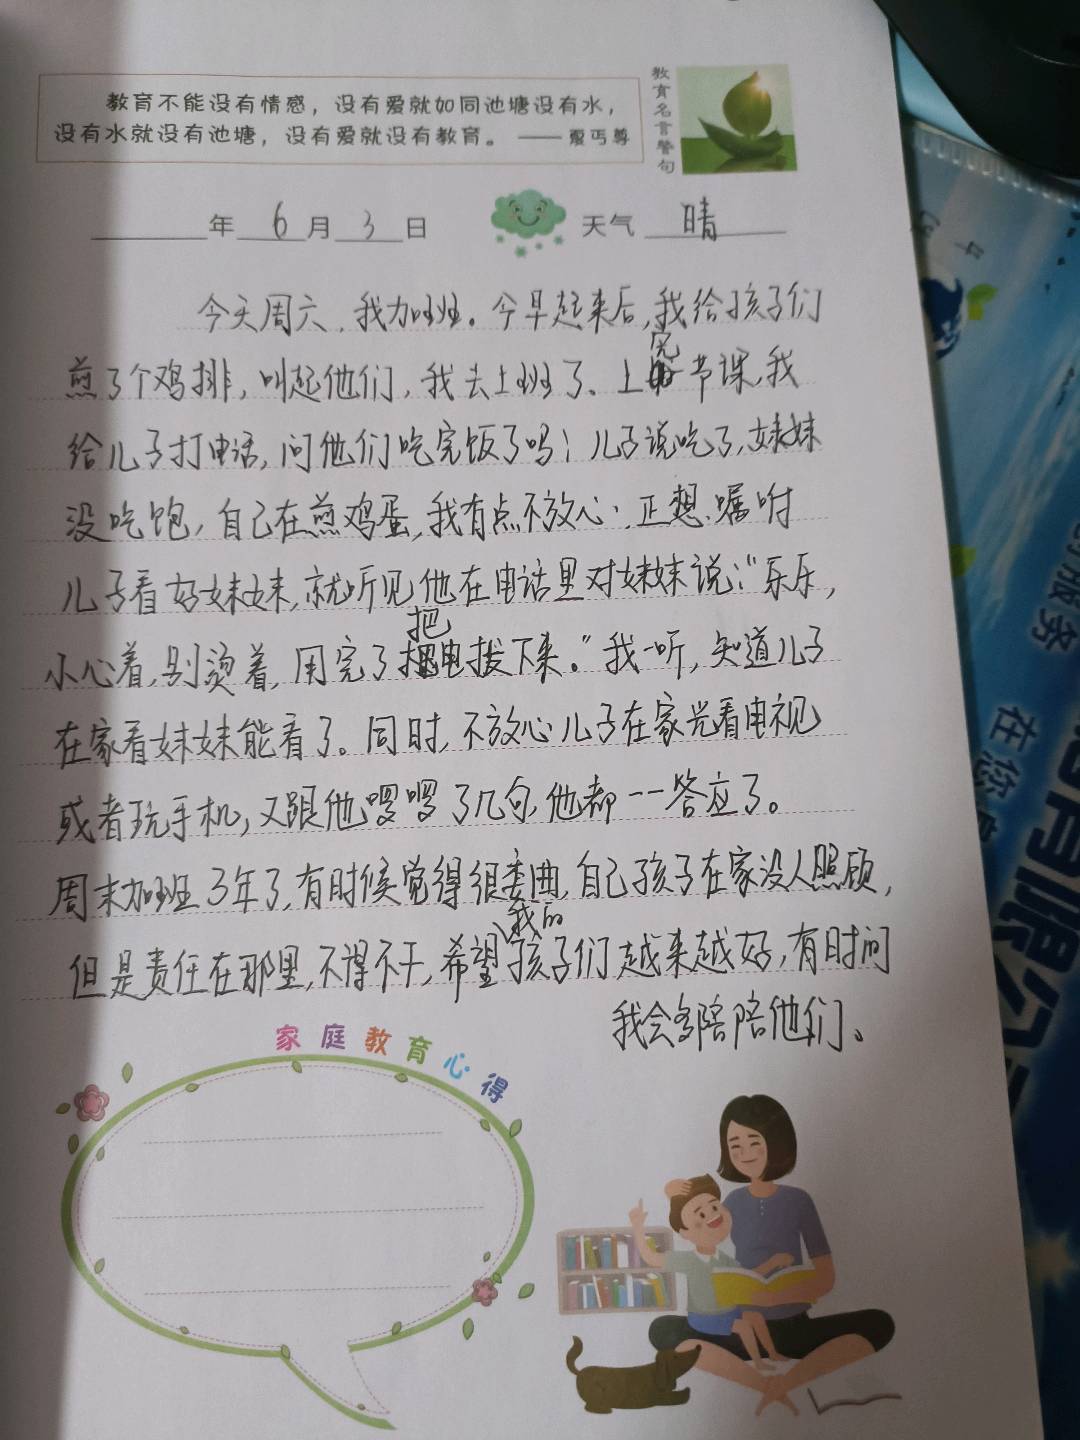 教育不能没有情感，没有爱就如同池塘没有水，
没有水就没有池塘，没有爱就没有教育。 ——夏丏尊
教育名言警句
年 6 月 3 日 天气 晴
今天周六，我加班。今早起来后，我给孩子们
煎了个鸡排，叫起他们，我去上班了、上完节课，我
给儿子打电话，问他们吃完饭了吗；儿子说吃了，妹妹
没吃饱，自己在煎鸡蛋，我有点不放心，正想嘱咐
儿子看好妹妹，就听见他在电话里对妹妹说：“乐乐，
小心着，别烫着，用完了把电拔下来。”我一听，知道儿子
在家看妹妹能看了。同时，不放心儿子在家光看电视
或者玩手机，又跟他啰啰了几句，他都一一答应了。
周末加班3年了，有时候觉得很委曲，自己孩子在家没人照顾，
但是责任在那里，不得不干，希望我的孩子们越来越好，有时间
我会多陪陪他们。
家庭教育心得
服务
在您
有限公